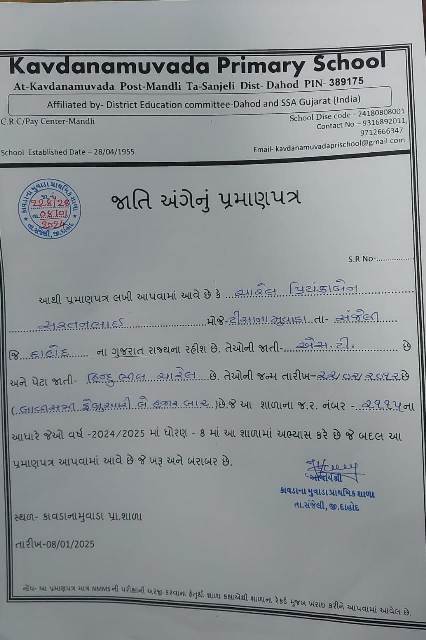 Kavdanamuvada Primary School
At-Kavdanamuvada Post-Mandli Ta-Sanjeli Dist- Dahod PIN- 389175
Affiliated by- District Education committee-Dahod and SSA Gujarat (India)
C.R.C/Pay Center-Mandli
School Dise code - 24180808001
Contact No - 9316892011
9712666347
School Established Date – 28/04/1955
Email- kavdanamuvadaprischool@gmail.com
જાતિ અંગેનું પ્રમાણપત્ર
S.R No-
આથી પ્રમાણપત્ર લખી આપવામાં આવે છે કે ચારેલ પ્રિયંકાબેન
મોજે- ટીસાના મુવાડા તા- સંજેલી
જિ દાહોદ ના ગુજરાત રાજ્યના રહીશ છે. તેઓની જાતી- એસ.ટી. છે
અને પેટા જાતી- હિન્દુ ભીલ ચારેલ છે. તેઓની જન્મ તારીખ- છે
( બે હજાર બાર ) છે.જે આ શાળાના જ.ર. નંબર - ૨૧૧૫ ના
આધારે જેઓ વર્ષ -2024/2025 માં ધોરણ - 8 માં આ શાળામાં અભ્યાસ કરે છે જે બદલ આ
પ્રમાણપત્ર આપવામાં આવે છે જે ખરૂ અને બરાબર છે.
આચાર્યશ્રી
કાવડાના મુવાડા પ્રાથમિક શાળા
તા.સંજેલી, જી.દાહોદ
સ્થળ- કાવડાનામુવાડા પ્રા.શાળા
તારીખ-08/01/2025
નોંધ- આ પ્રમાણપત્ર માત્ર NMMSની પરીક્ષાની અરજી કરવાના હેતુથી શાળાના રેકર્ડ મુજબ ખરાઇ કરીને આપવામાં આવેલ છે.